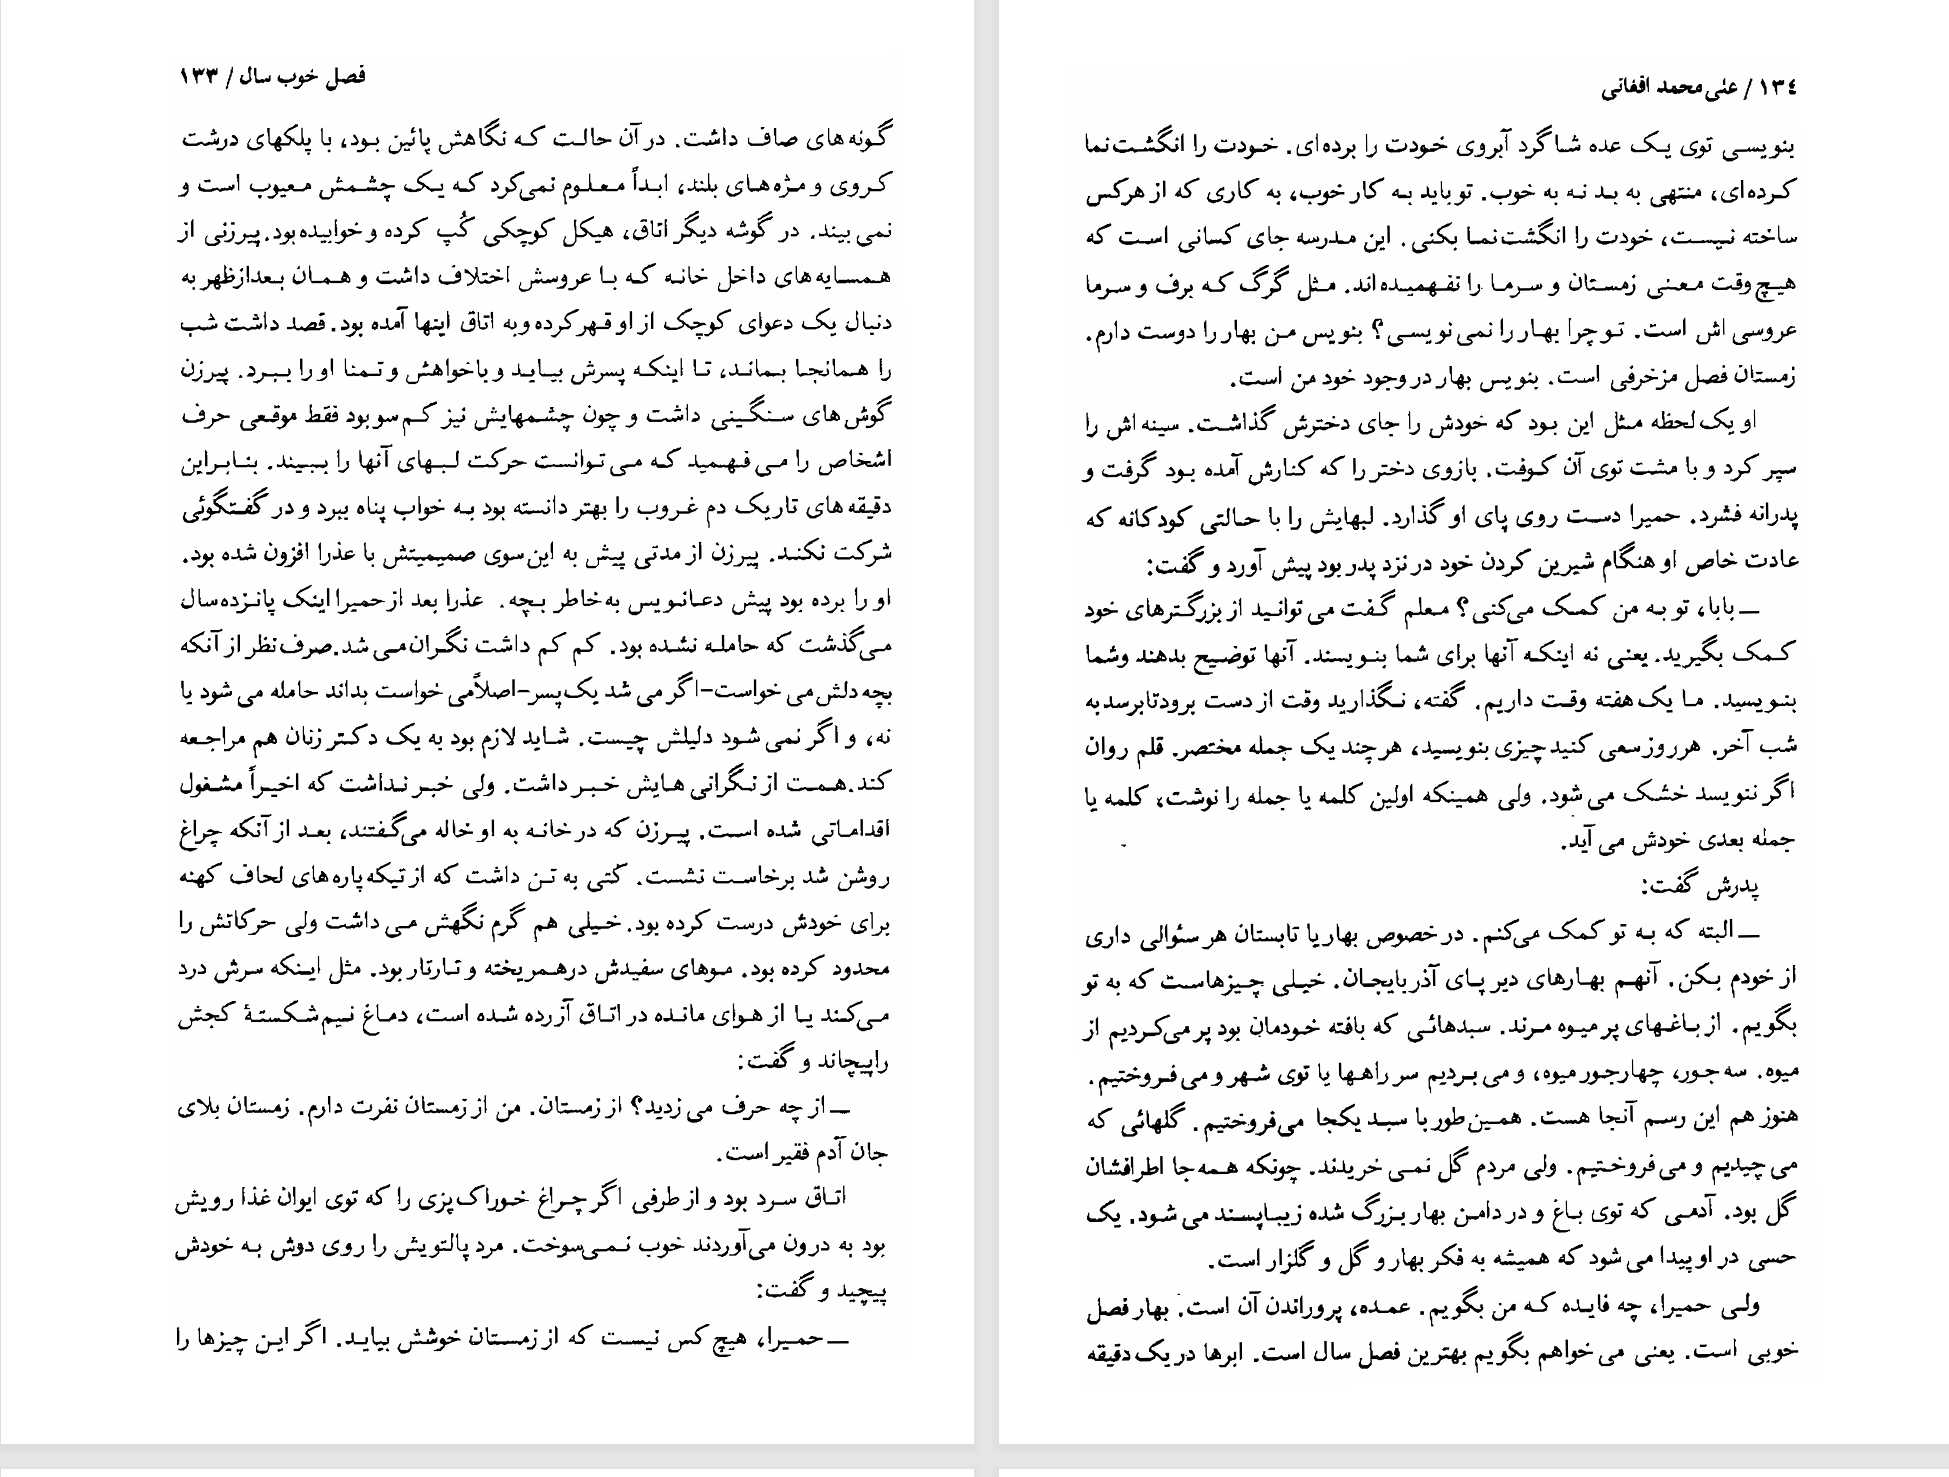 فصل خوب سال / ۱۳۳
گونه‌های صاف داشت. در آن حالت که نگاهش پائین بود، با پلکهای درشت
کروی و مژه‌های بلند، ابداً معلوم نمی‌کرد که یک چشمش معیوب است و
نمی‌بیند. در گوشه دیگر اتاق، هیکل کوچکی کُپ کرده و خوابیده بود. پیرزنی از
همسایه‌های داخل خانه که با عروسش اختلاف داشت و همان بعدازظهر به
دنبال یک دعوای کوچک از او قهر کرده و به اتاق اینها آمده بود. قصد داشت شب
را همانجا بماند، تا اینکه پسرش بیاید و با خواهش و تمنا او را ببرد. پیرزن
گوش‌های سنگینی داشت و چون چشمهایش نیز کم‌سو بود فقط موقعی حرف
اشخاص را می‌فهمید که می‌توانست حرکت لبهای آنها را ببیند. بنابراین
دقیقه‌های تاریک دم غروب را بهتر دانسته بود به خواب پناه ببرد و در گفتگوئی
شرکت نکند. پیرزن از مدتی پیش به این‌سوی صمیمیتش با عذرا افزون شده بود.
او را برده بود پیش دعانویس به خاطر بچه. عذرا بعد از حمیرا اینک پانزده سال
می‌گذشت که حامله نشده بود. کم کم داشت نگران می‌شد. صرف‌نظر از آنکه
بچه دلش می‌خواست-اگر می‌شد یک پسر-اصلاً می‌خواست بداند حامله می‌شود یا
نه، و اگر نمی‌شود دلیلش چیست. شاید لازم بود به یک دکتر زنان هم مراجعه
کند. همت از نگرانی‌هایش خبر داشت. ولی خبر نداشت که اخیراً مشغول
اقداماتی شده است. پیرزن که در خانه به او خاله می‌گفتند، بعد از آنکه چراغ
روشن شد برخاست نشست. کتی به تن داشت که از تیکه پاره‌های لحاف کهنه
برای خودش درست کرده بود. خیلی هم گرم نگهش می‌داشت ولی حرکاتش را
محدود کرده بود. موهای سفیدش درهمریخته و تارتار بود. مثل اینکه سرش درد
می‌کند یا از هوای مانده در اتاق آزرده شده است، دماغ نیم‌شکستهٔ کجش
را پیچاند و گفت:
— از چه حرف می‌زدید؟ از زمستان. من از زمستان نفرت دارم. زمستان بلای
جان آدم فقیر است.
اتاق سرد بود و از طرفی اگر چراغ خوراک‌پزی را که توی ایوان غذا رویش
بود به درون می‌آوردند خوب نمی‌سوخت. مرد پالتویش را روی دوش به خودش
پیچید و گفت:
— حمیرا، هیچ کس نیست که از زمستان خوشش بیاید. اگر این چیزها را
۱۳۴ / علی محمد افغانی
بنویسی توی یک عده شاگرد آبروی خودت را برده‌ای. خودت را انگشت‌نما
کرده‌ای، منتهی به بد نه به خوب. تو باید به کار خوب، به کاری که از هرکس
ساخته نیست، خودت را انگشت‌نما بکنی. این مدرسه جای کسانی است که
هیچ‌وقت معنی زمستان و سرما را نفهمیده‌اند. مثل گرگ که برف و سرما
عروسی‌اش است. تو چرا بهار را نمی‌نویسی؟ بنویس من بهار را دوست دارم.
زمستان فصل مزخرفی است. بنویس بهار در وجود خود من است.
او یک لحظه مثل این بود که خودش را جای دخترش گذاشت. سینه‌اش را
سپر کرد و با مشت توی آن کوفت. بازوی دختر را که کنارش آمده بود گرفت و
پدرانه فشرد. حمیرا دست روی پای او گذارد. لبهایش را با حالتی کودکانه که
عادت خاص او هنگام شیرین کردن خود در نزد پدر بود پیش آورد و گفت:
— بابا، تو به من کمک می‌کنی؟ معلم گفت می‌توانید از بزرگترهای خود
کمک بگیرید. یعنی نه اینکه آنها برای شما بنویسند. آنها توضیح بدهند و شما
بنویسید. ما یک هفته وقت داریم. گفته، نگذارید وقت از دست برود تا برسد به
شب آخر. هر روز سعی کنید چیزی بنویسید، هرچند یک جمله مختصر. قلم روان
اگر ننویسد خشک می‌شود. ولی همینکه اولین کلمه یا جمله را نوشت، کلمه یا
جمله بعدی خودش می‌آید.
پدرش گفت:
— البته که به تو کمک می‌کنم. در خصوص بهار یا تابستان هر سئوالی داری
از خودم بکن. آنهم بهارهای دیر پای آذربایجان. خیلی چیزهاست که به تو
بگویم. از باغهای پر میوه مرند. سبدهائی که بافته خودمان بود پر می‌کردیم از
میوه. سه جور، چهارجور میوه، و می‌بردیم سر راهها یا توی شهر و می‌فروختیم.
هنوز هم این رسم آنجا هست. همین‌طور با سبد یکجا می‌فروختیم. گلهائی که
می‌چیدیم و می‌فروختیم. ولی مردم گل نمی‌خریدند. چونکه همه جا اطرافشان
گل بود. آدمی که توی باغ و در دامن بهار بزرگ شده زیباپسند می‌شود. یک
حسی در او پیدا می‌شود که همیشه به فکر بهار و گل و گلزار است.
ولی حمیرا، چه فایده که من بگویم. عمده، پروراندن آن است. بهار فصل
خوبی است. یعنی می‌خواهم بگویم بهترین فصل سال است. ابرها در یک دقیقه